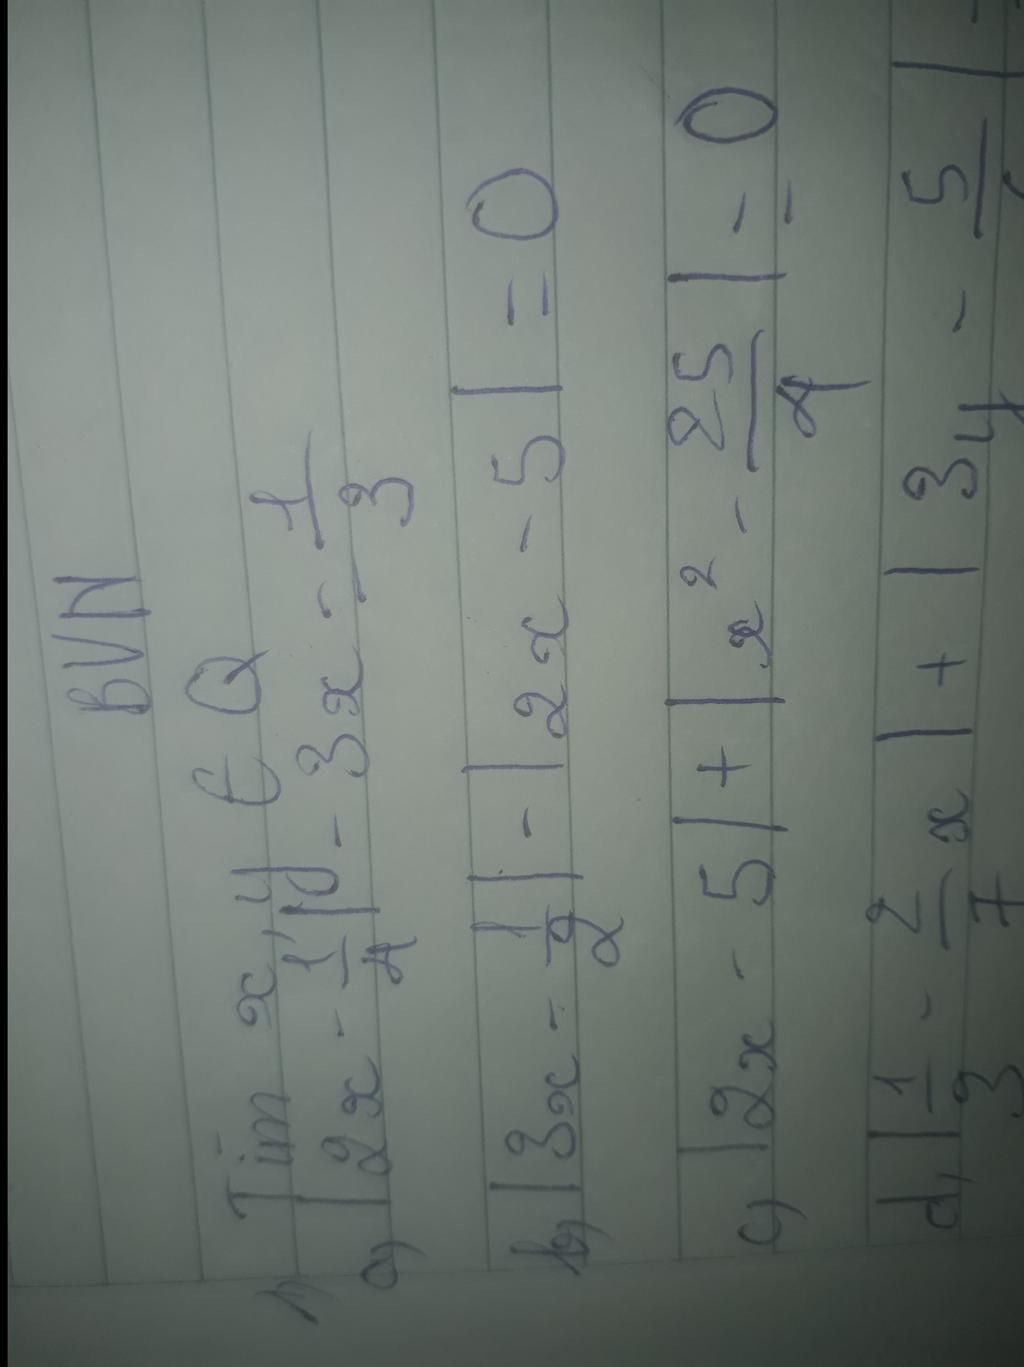 BVN
1) Tìm x, y ∈ Q
a) |2x - 1/4| - 3x - 1/3
b) |3x - 1/2| - |2x - 5| = 0
c) |2x - 5| + |x² - 25/4| = 0
d) |1/3 - 2/7 x| + | 3y - 5